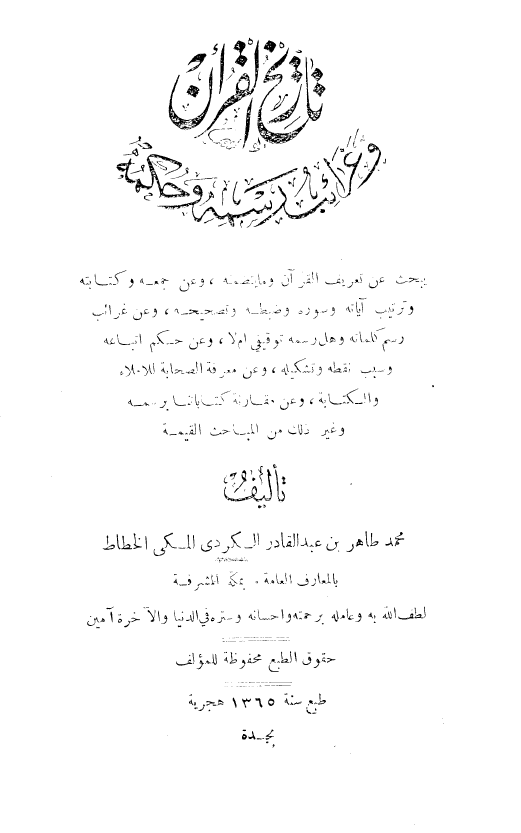 تاريخ القرآن
وغرائب رسمه وحكمه
يبحث عن تعريف القرآن وما يتصمه ، وعن جمعه وكتابته
وترتيب آياته وسوره وضبطه وتصحيحه ، وعن غرائب
رسم كلماته وهل رسمه توقيفي ام لا ، وعن حكم اتباعه
وسبب نقطه وتشكيله ، وعن معرفة الصحابة للاملاء
والكتابة ، وعن مقارنة كتاباتنا برسمه
وغير ذلك من المباحث القيمة
تأليف
محمد طاهر بن عبدالقادر الكردى المكى الخطاط
بالمعارف العامة . بمكة المشرفة
لطف الله به وعامله برحمته واحسانه وستره في الدنيا والآخرة آمين
حقوق الطبع محفوظة للمؤلف
طبع سنة ١٣٦٥ هجرية
بجدة